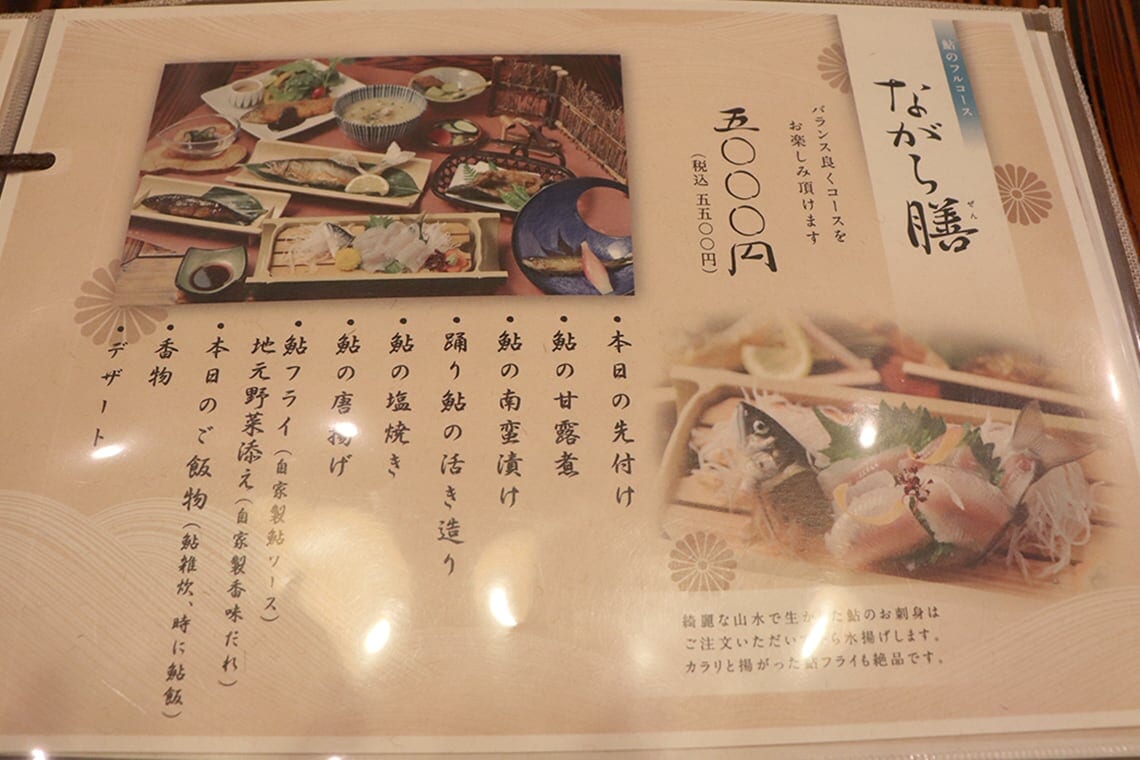 鮎のフルコース
ながら膳
ぜん
バランス良くコースを
お楽しみ頂けます
五〇〇〇円
(税込 五五〇〇円)
•本日の先付け
•鮎の甘露煮
•鮎の南蛮漬け
•踊り鮎の活き造り
•鮎の塩焼き
•鮎の唐揚げ
•鮎フライ(自家製鮎ソース)
地元野菜添え(自家製香味だれ)
•本日のご飯物(鮎雑炊、時に鮎飯)
•香物
•デザート
綺麗な山水で生かった鮎のお刺身は
ご注文いただいてから水揚げします。
カラリと揚がった鮎フライも絶品です。